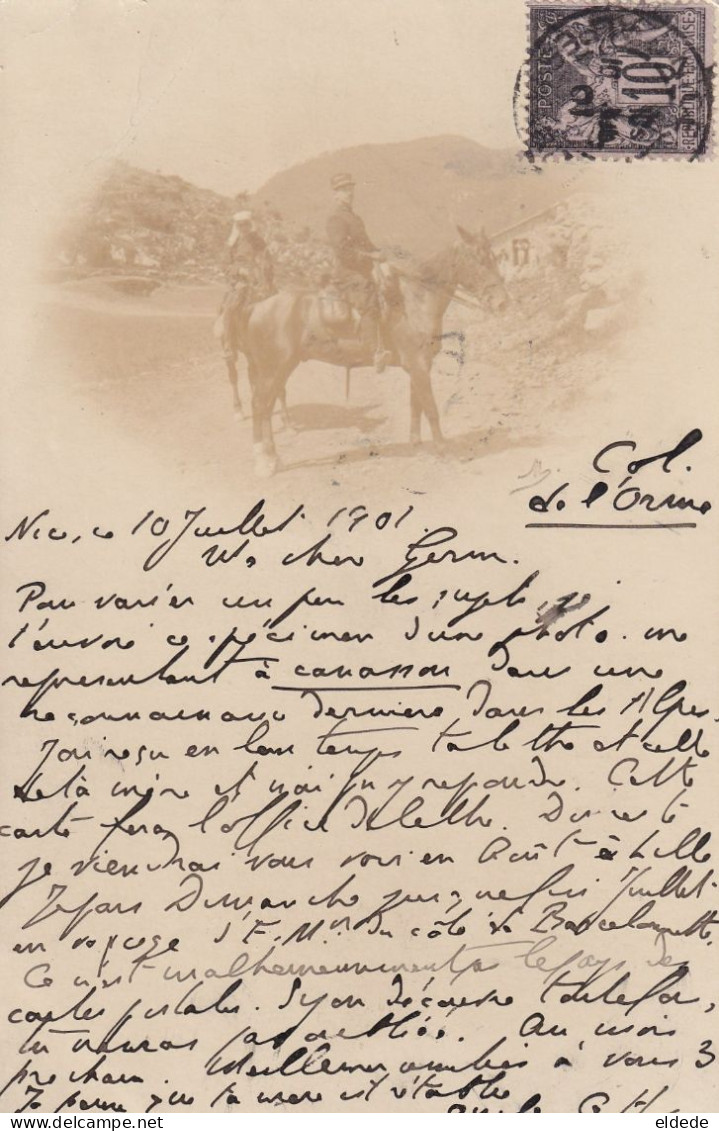 POSTE
10
REPUBLIQUE FRANCAISE
Col.
de l'Orme
Nice, ce 10 Juillet 1901.
cher Germ.
Pour varier un peu les sujets, je
t'envoie ce spécimen d'une photo. me
representant à canasson dans une
reconnaissance dernière dans les Alpes.
J'ai reçu en son temps ta lettre et celle
de ta mère et n'ai pu y repondre. Cette
carte fera l'office de lettre. Du reste
je viendrai vous voir en Août à Lille
Je pars Dimanche jusque fin Juillet
en voyage d'E.M. du côté de Barcelonnette.
Ce n'est malheureusement pas le pays des
cartes postales. Si j'en découvre toutefois,
tu n'auras pas oubliée. Au mois
prochain. Meilleures amitiés à vous 3
Je pense que ta mère est rétablie